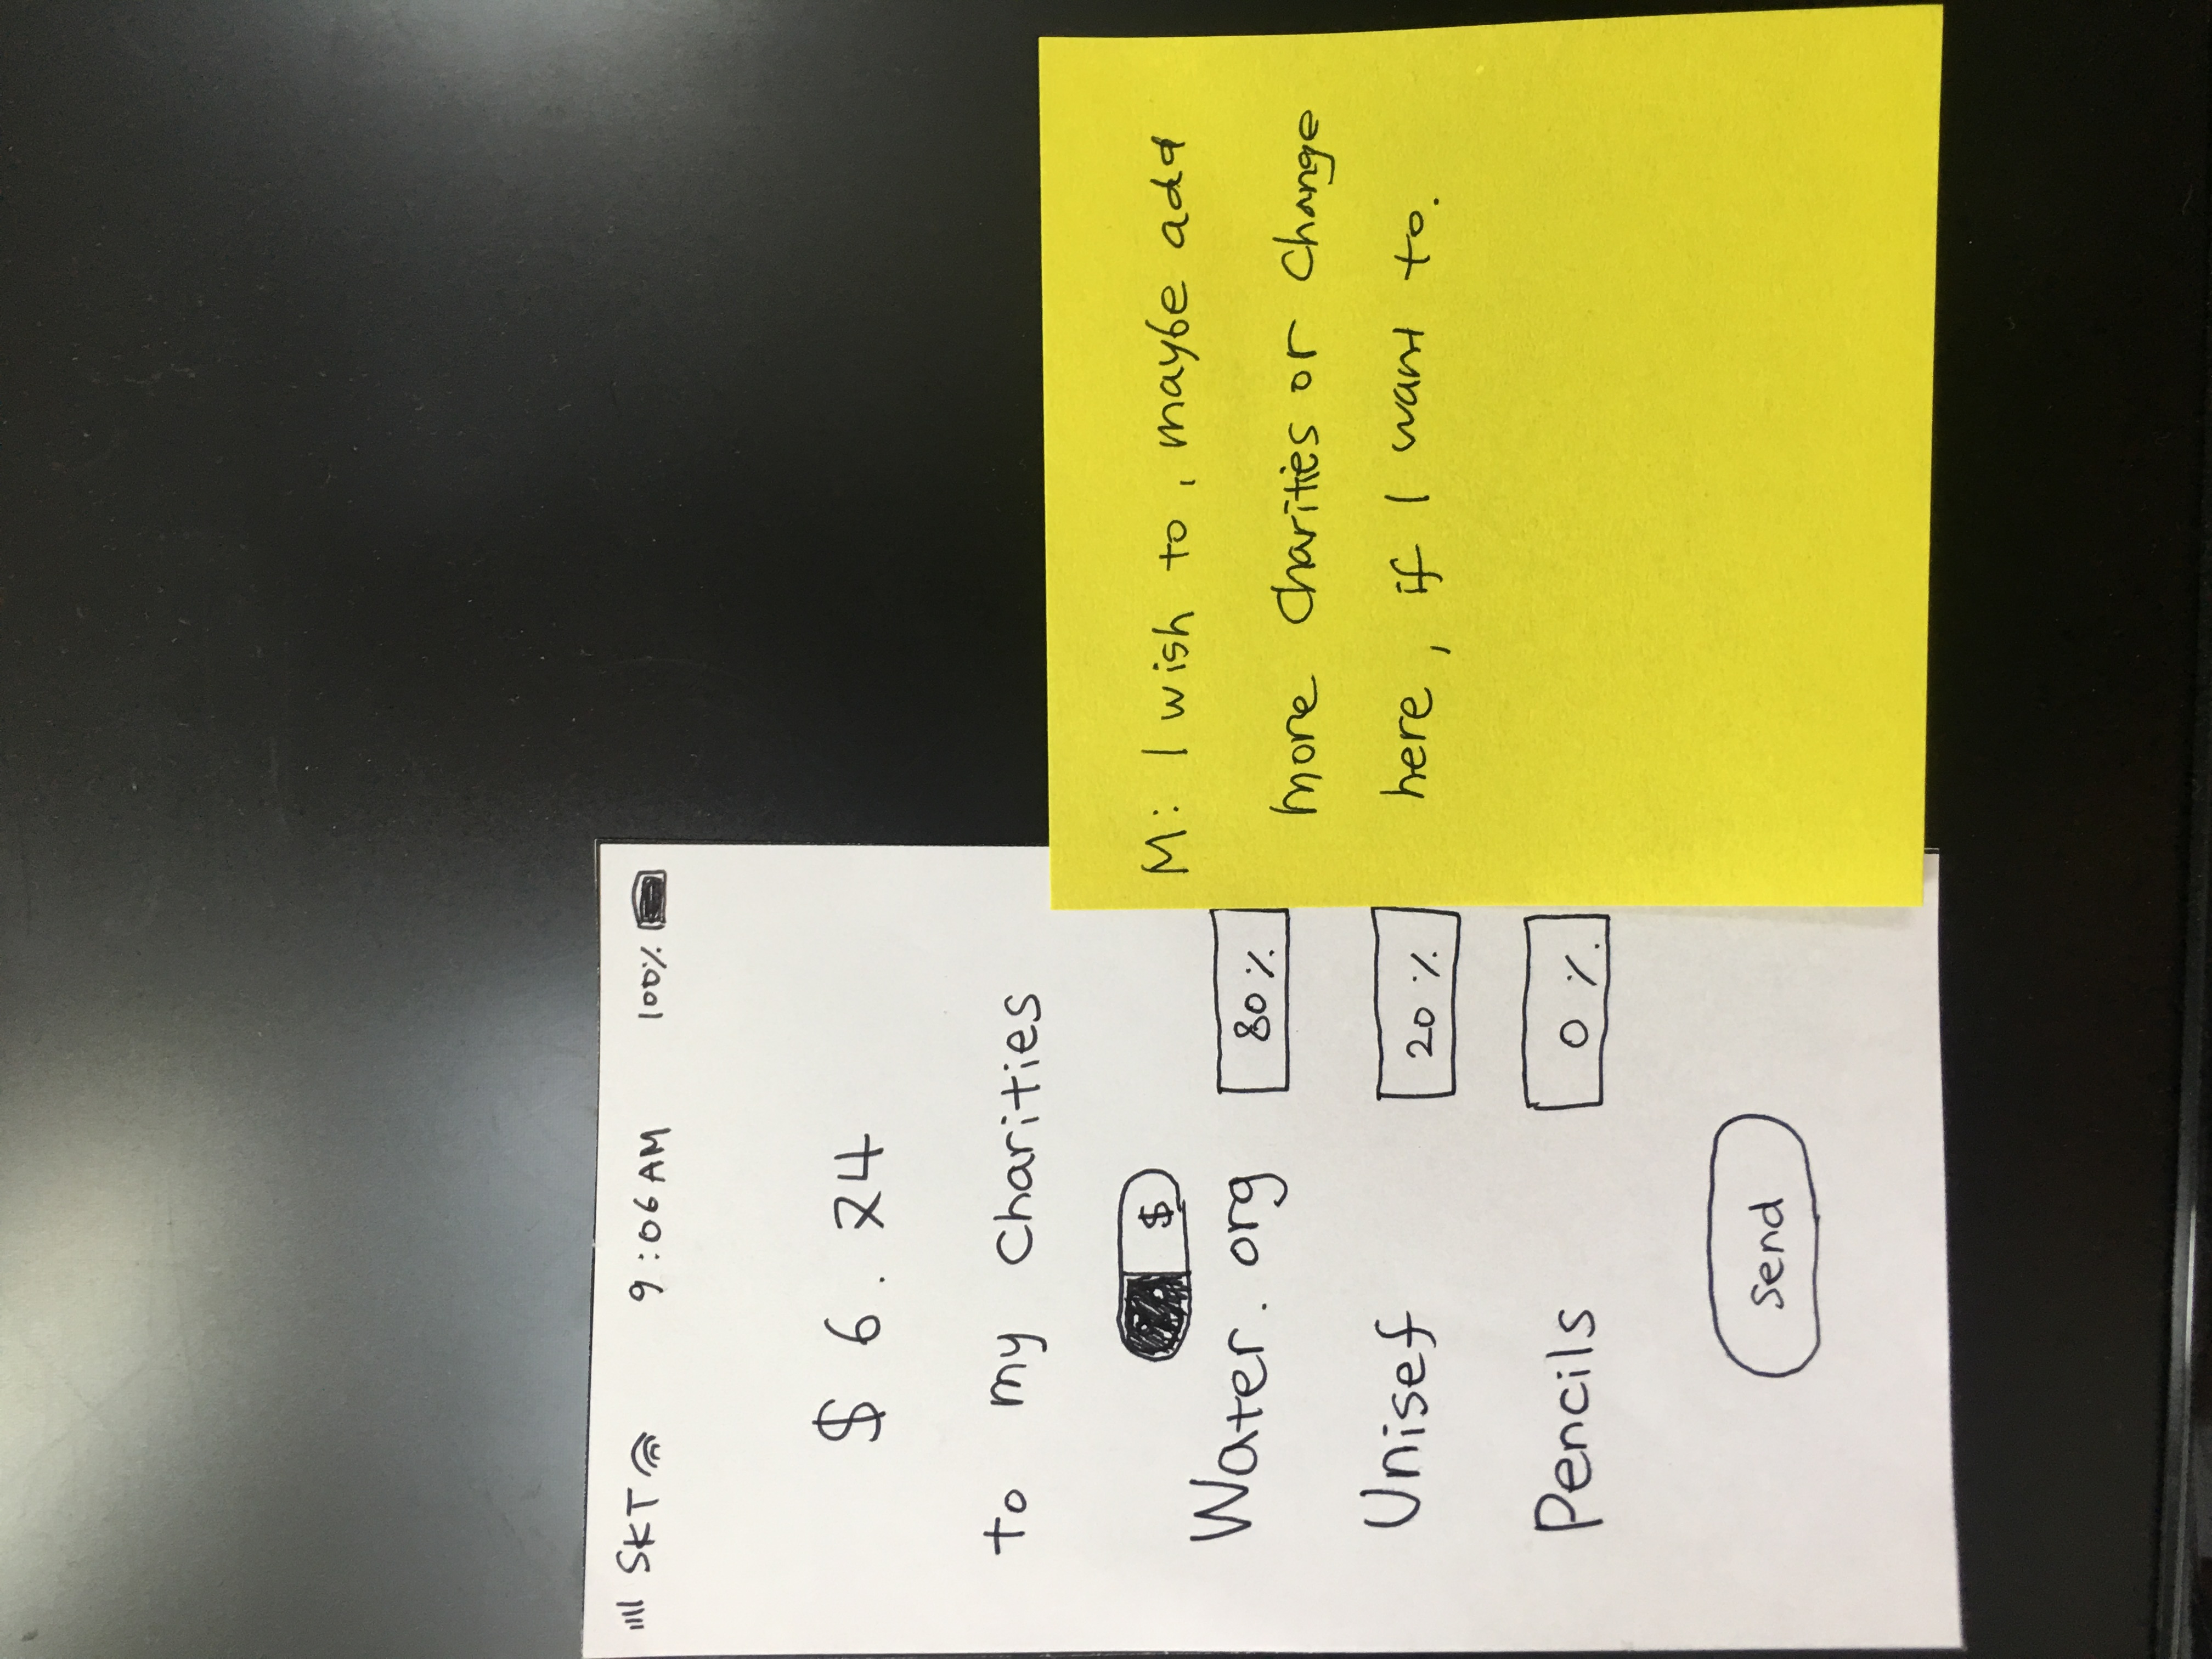 SKT 9:06 AM 100%
$ 6.24
to my Charities
$
Water.org 80%
Unisef 20%
Pencils 0%
Send
M: I wish to, maybe add
more Charities or Change
here, if I want to.